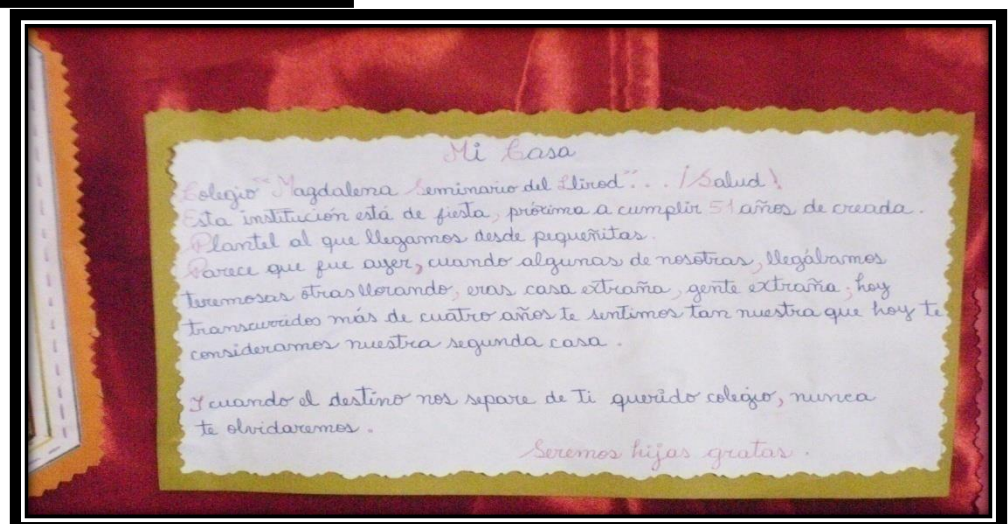 Mi Casa
Colegio "Magdalena Seminario del Llirod"... ¡Salud!
Esta institución está de fiesta, próxima a cumplir 51 años de creada.
Plantel al que llegamos desde pequeñitas.
Parece que fue ayer, cuando algunas de nosotras, llegábamos
temerosas otras llorando, eras casa extraña, gente extraña; hoy
transcurridos más de cuatro años te sentimos tan nuestra que hoy te
consideramos nuestra segunda casa.
Y cuando el destino nos separe de Ti querido colegio, nunca
te olvidaremos.
Seremos hijas gratas.